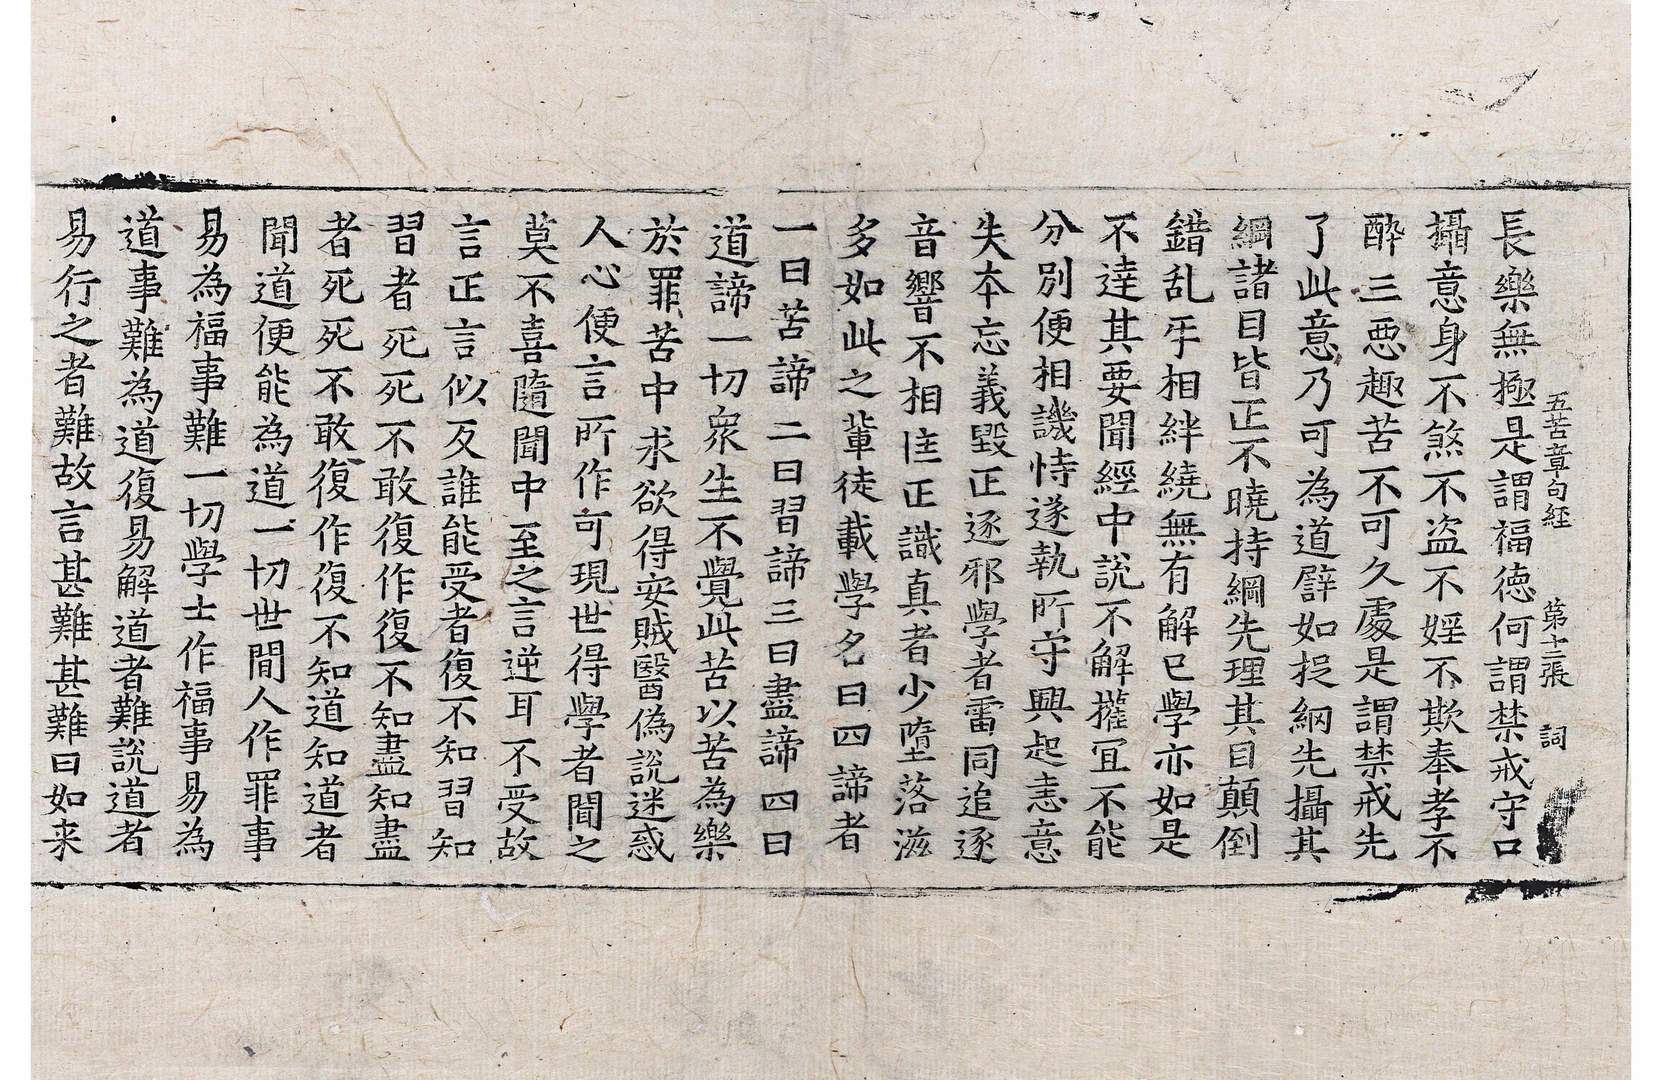 五苦章句経 第十二張 詞
長樂無極是謂福徳何謂禁戒守口
攝意身不煞不盗不婬不欺奉孝不
酔三惡趣苦不可久處是謂禁戒先
了此意乃可為道譬如捉網先攝其
綱諸目皆正不曉持綱先理其目顛倒
錯乱牙相絆繞無有解已學亦如是
不達其要聞經中說不解攉冝不能
分別便相譏恃遂執所守興起恚意
失夲忘義毀正逐邪學者雷同追逐
音響不相匡正識真者少墮落滋
多如此之輩徒載學名曰四諦者
一曰苦諦二曰習諦三曰盡諦四曰
道諦一切衆生不覺此苦以苦為樂
於罪苦中求欲得安賊醫偽說迷惑
人心便言所作可現世得學者聞之
莫不喜隨聞中至之言逆耳不受故
言正言似反誰能受者復不知習知
習者死死不敢復作復不知盡知盡
者死死不敢復作復不知道知道者
聞道便能為道一切世間人作罪事
易為福事難一切學士作福事易為
道事難為道復易解道者難說道者
易行之者難故言甚難甚難曰如来